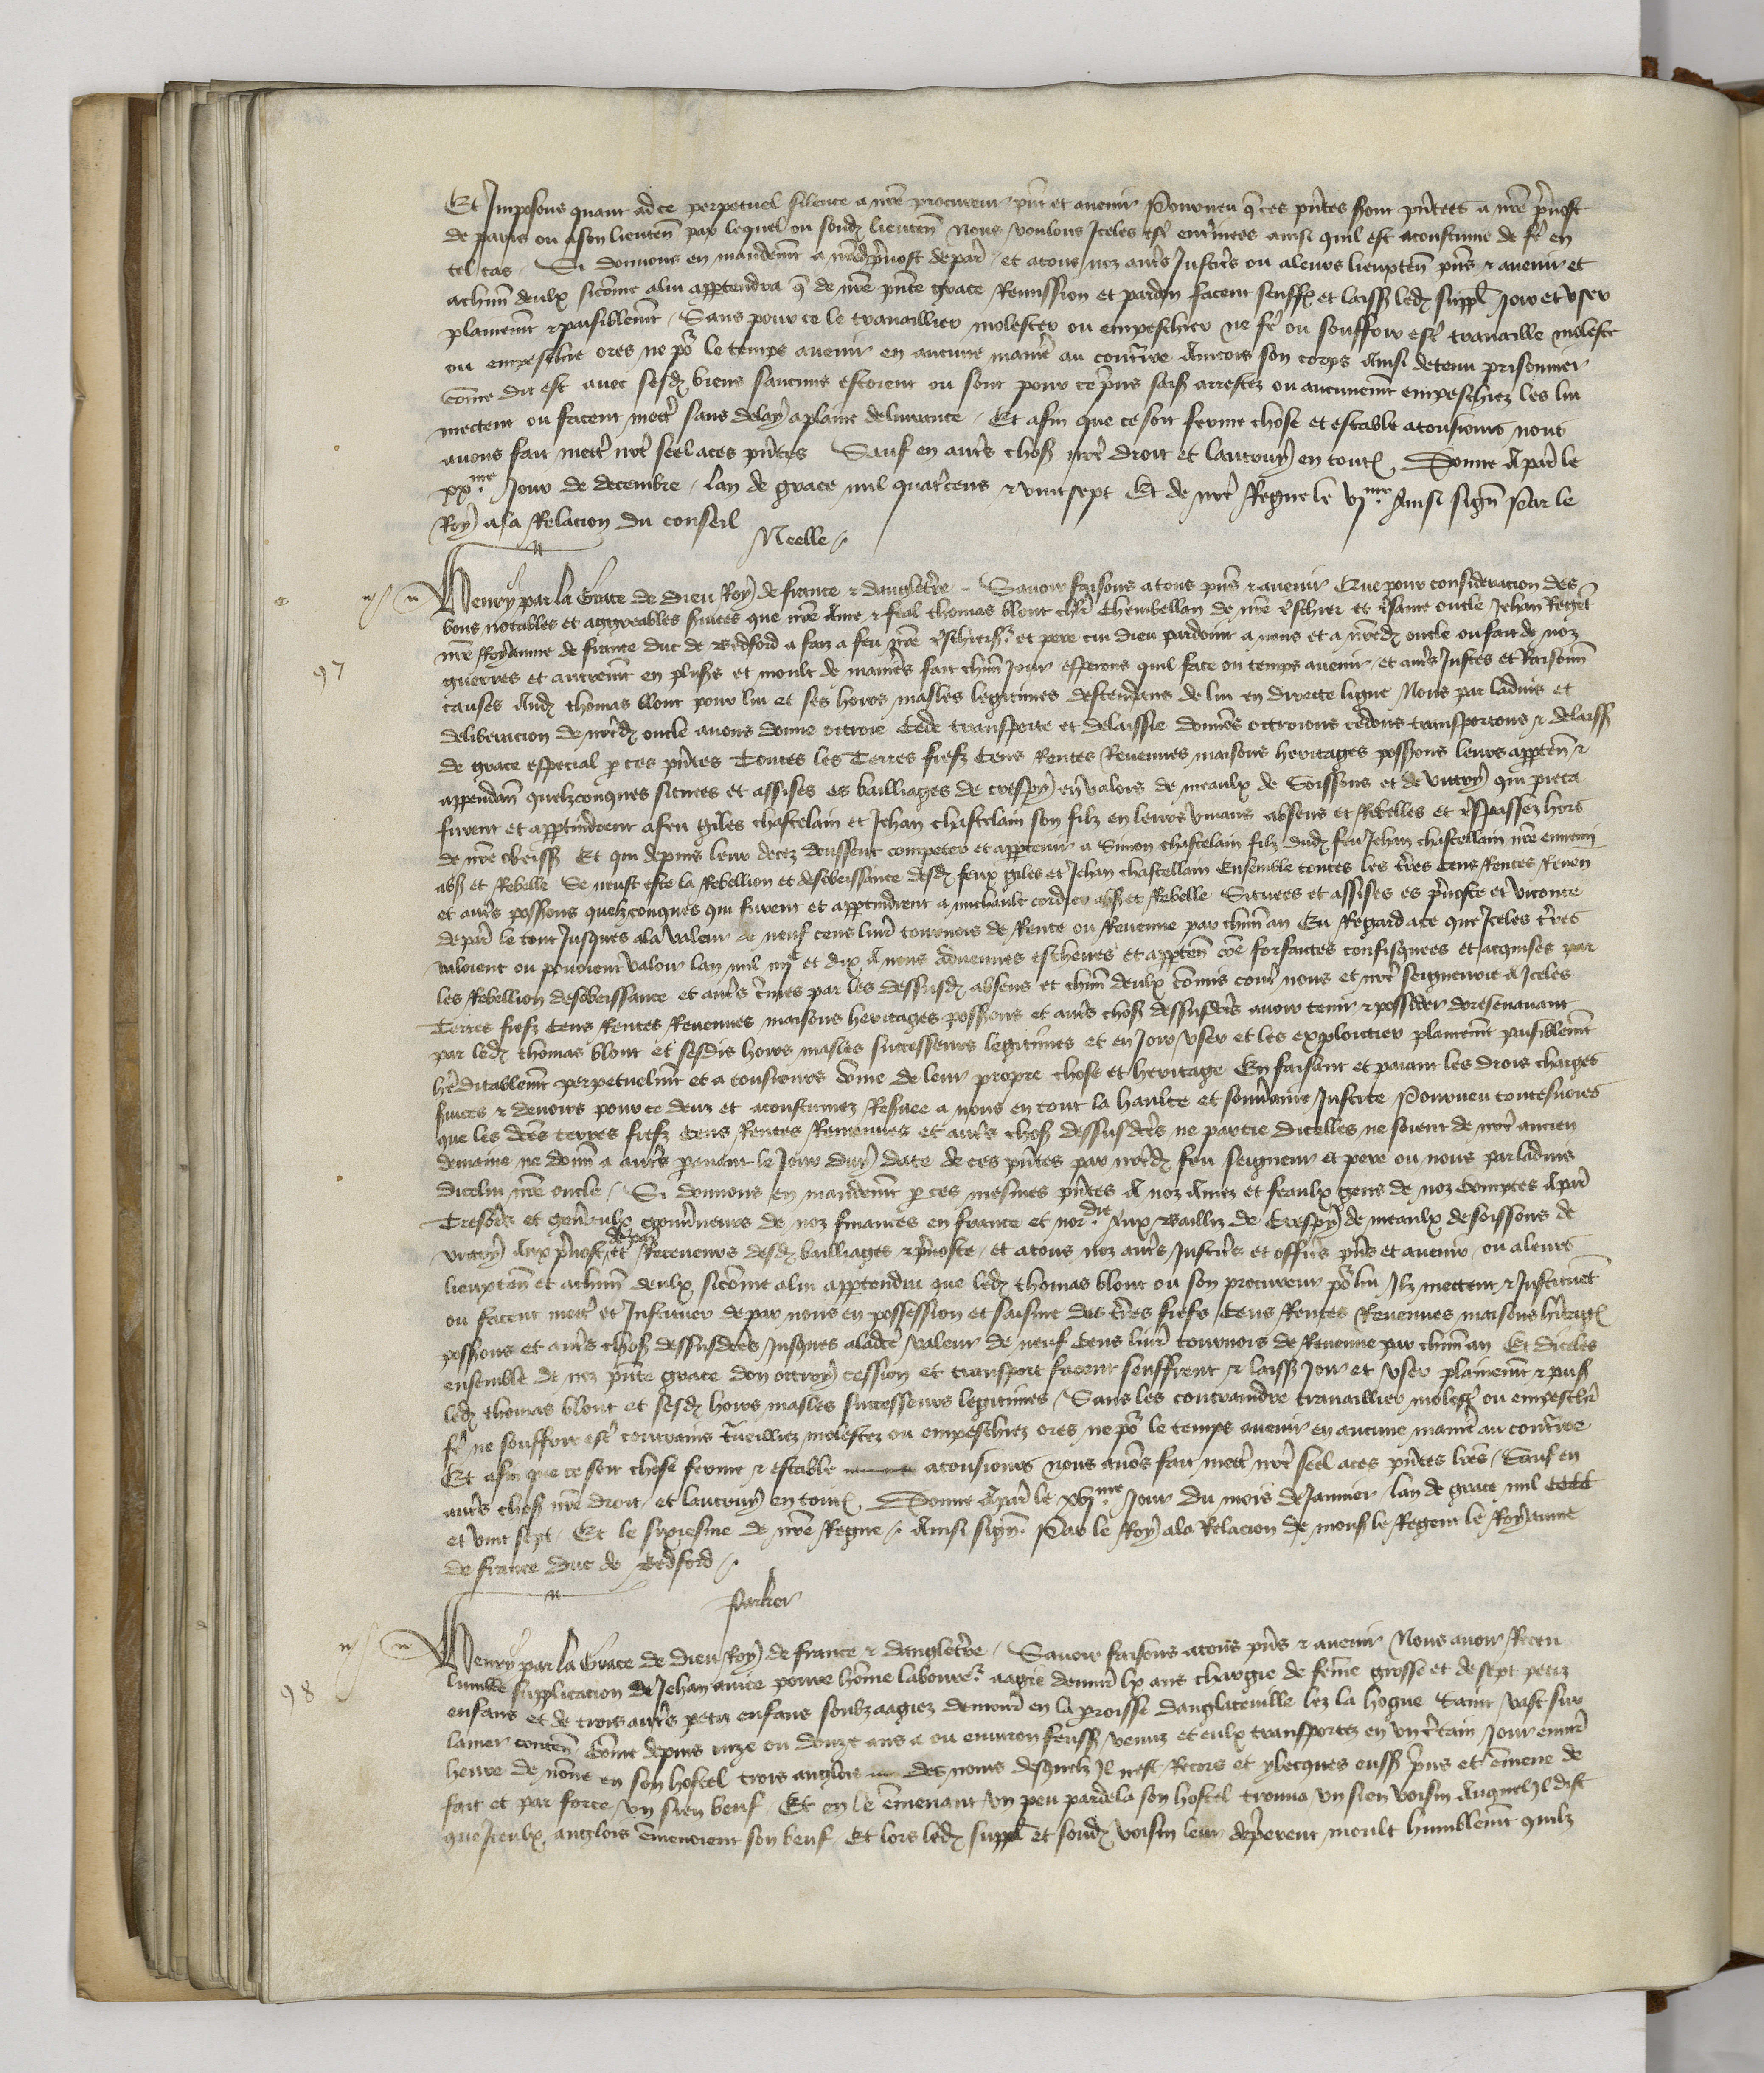 Et Imposons quant ad ce perpetuel silence a nre procureur pnt et avenir Pourveu q ces pntes soient pntees a nre prevost
de paris ou a son lieuten par lequel ou sond lieuten Nous voulons Iceles estre enterinees ainsi quil est acoustume de fe en
tel cas Si donnons en mandemt a nred prevost de paris et a tous noz autres Justiciers ou a leurs lieuxten pns et avenir et
a chun deulx sicome a lui appartendra q de nre pnte grace Remission et pardon facent seuffr et laiss led suppl Joir et user
plainemt et paisiblemt Sans pour ce le travaillier molester ou empeschier ne fe ou souffrir estre travaille moleste
ou empeschie ores ne po le temps avenir en aucune manre au contraire Aincois son corps Ainsi detenu prisonnier
come dit est avec sesd biens saucuns estoient ou sont pour ce prins saisiz arrestez ou aucunemt empeschiez les lui
mettent ou facent mettre sans delay a plaine delivrance Et afin que ce soit ferme chose et estable a tousiours nous
avons fait mettre notre seel a ces pntes Sauf en autres choses notre droit et lautruy en toutes Donne A paris le
xxme Jour de decembre lan de grace mil quatrecens et vint sept Et de notre Regne le vjme Ainsi signe Par le
Roy a la Relacion du conseil
Neelle
97
Henry par la Grace de Dieu Roy de france et dangleterre Savoir faisons a tous pns et avenir Que pour consideracion des
bons notables et aggreables services que nre Ame et feal thomas blont chlr Chambellan de nre treschier et tresame oncle Jehan Regent
nre Royaume de france duc de Bedford a faiz a feu nre treschier sr et pere cui Dieu pardoint a nous et a nred oncle ou fait de noz
guerres et autremt en plusrs et moult de manires fait chun Jour esperons quil face ou temps avenir et autres Justes et Raisonn
causes Aud thomas blont pour lui et ses hoirs masles legitimes descendans de lui en directe ligne Nous par ladvis et
deliberacion de nred oncle avons donne ottroie Cede transporte et delaissie donnons ottroions cedons transportons et delaiss
de grace especial p ces pntes Toutes les Terres fiefz Cens Rentes Revenues maisons heritages possessions leurs apparten et
appendan quelzconques situees et assises es bailliages de crespy en valois de meaulx de Soissons et de vitry qui pieca
furent et appartindrent a feu giles chastelain et Jehan chastelain son filz en leurs vivans absens et Rebelles et trespassez hors
de nre obeiss Et qui depuis leur decez deussent competer et appartenir a Simon chastelain filz dud feu Jehan chastellain nre ennemi
abs et Rebelle Se neust este la Rebellion et desobeissance desd feux giles et Jehan chastellain Ensemble toutes les terres Cens Rentes Reven
et autres possessions quelzconques qui furent et appartindrent a michault cordier abs et Rebelle Situees et assises es prevoste et viconte
de paris le tout Jusques a la valeur de neuf cens livres tournois de Rente ou Revenue par chun an Eu Regard a ce que Iceles terres
valoient ou povoient valoir lan mil iiijc et dix A nous Advenues escheues et apparten come forfaites confisquees et acquises par
les Rebellion desobeissance et autres crimes par les dessusd absens et chun deulx commis contre nous et notre seigneurie A Iceles
Terres fiefz Cens Rentes Revenues maisons heritages possessions et autres choses dessusdictes avoir tenir et posseder doresenavant
par led thomas blont et sesdis hoirs masles successeurs legitimes et en Joir user et les exploictier plainemt paisiblemt
hereditablemt perpetuelmt et a tousiours come de leur propre chose et heritage En faisant et paiant les drois charges
services et devoirs pour ce deuz et acoustumez Reservee a nous en tout la haulte et souveraine Justice Pourveu toutesvoies
que les dictes terres fiefz Cens Rentes Revenues et autres choses dessusdictes ne partie dicelles ne soient de notre ancien
demaine ne donn a autres paravant le Jour duy date de ces pntes par nred feu seigneur et pere ou nous par ladvis
dicelui nre oncle Si donnons en mandemt p ces mesmes pntes A noz Amez et feaulx gens de noz Comptes A paris
Tresoriers et generaulx gouverneurs de noz finances en france et nordie Aux Bailliz de Crespy de meaulx de soissons de
vitry Aux prevost de paris et Receveurs desd bailliages et prevoste et a tous noz autres Justiciers et officiers pns et avenir ou a leurs
lieuxten et a chun deulx sicome a lui appartendra que led thomas blont ou son procureur po lui Ilz mettent et Instituent
ou facent mettre et Instituer de par nous en possession et saisine des terres fiefs Cens Rentes Revenues maisons heritages
possessions et autres choses dessusdictes Jusques a ladicte valeur de neuf Cens livres tournois de Revenue par chun an Et diceles
ensemble de noz pnte grace don ottroy cession et transport facent seuffrent et laiss Joir et user plainemt et pais
led thomas blont et sesd hoirs masles successeurs legitimes Sans les contraindre travaillier molester ou empeschier
fe ne souffrir estre contrains travailliez molestez ou empeschiez ores ne po le temps avenir en aucune manre au contraire
Et afin que ce soit chose ferme et estable a tousiours nous avons fait mettre notre seel a ces pntes lres Sauf en
autres choses nre droit et lautruy en toutes Donne A paris le xvjme Jour du mois de Janvier lan de grace mil cccc
et vint sept Et le sixiesme de nre Regne Ainsi signe Par le Roy a la Relacion de mons le Regent le Royaume
de france Duc de Bedford
Parker
98
Henry par la Grace de Dieu Roy de france et dangleterre Savoir faisons a tous pns et avenir Nous avoir Receu
lumble supplicacion de Jehan avice povre home laboureur aagie denviron lx ans chargie de feme grosse et de sept petiz
enfans et de trois autres petiz enfans soubzaagiez demourant en la parroisse danglateville lez la hogue Saint vast sur
la mer conten Come depuis unze ou douze ans a ou environ feuss venuz et eulx transportez en un certain Jour environ
heure de nonne en son hostel trois anglois des noms desquelz Il nest Recors et ylecques eussent prins et emmene de
fait et par force un sien beuf Et en le emmenant un peu par dela son hostel trouva un sien voisin Auquel Il dist
que Iceulx anglois emmenoient son beuf Et lors led suppl et sond voisin leur deprierent moult humblemt quilz